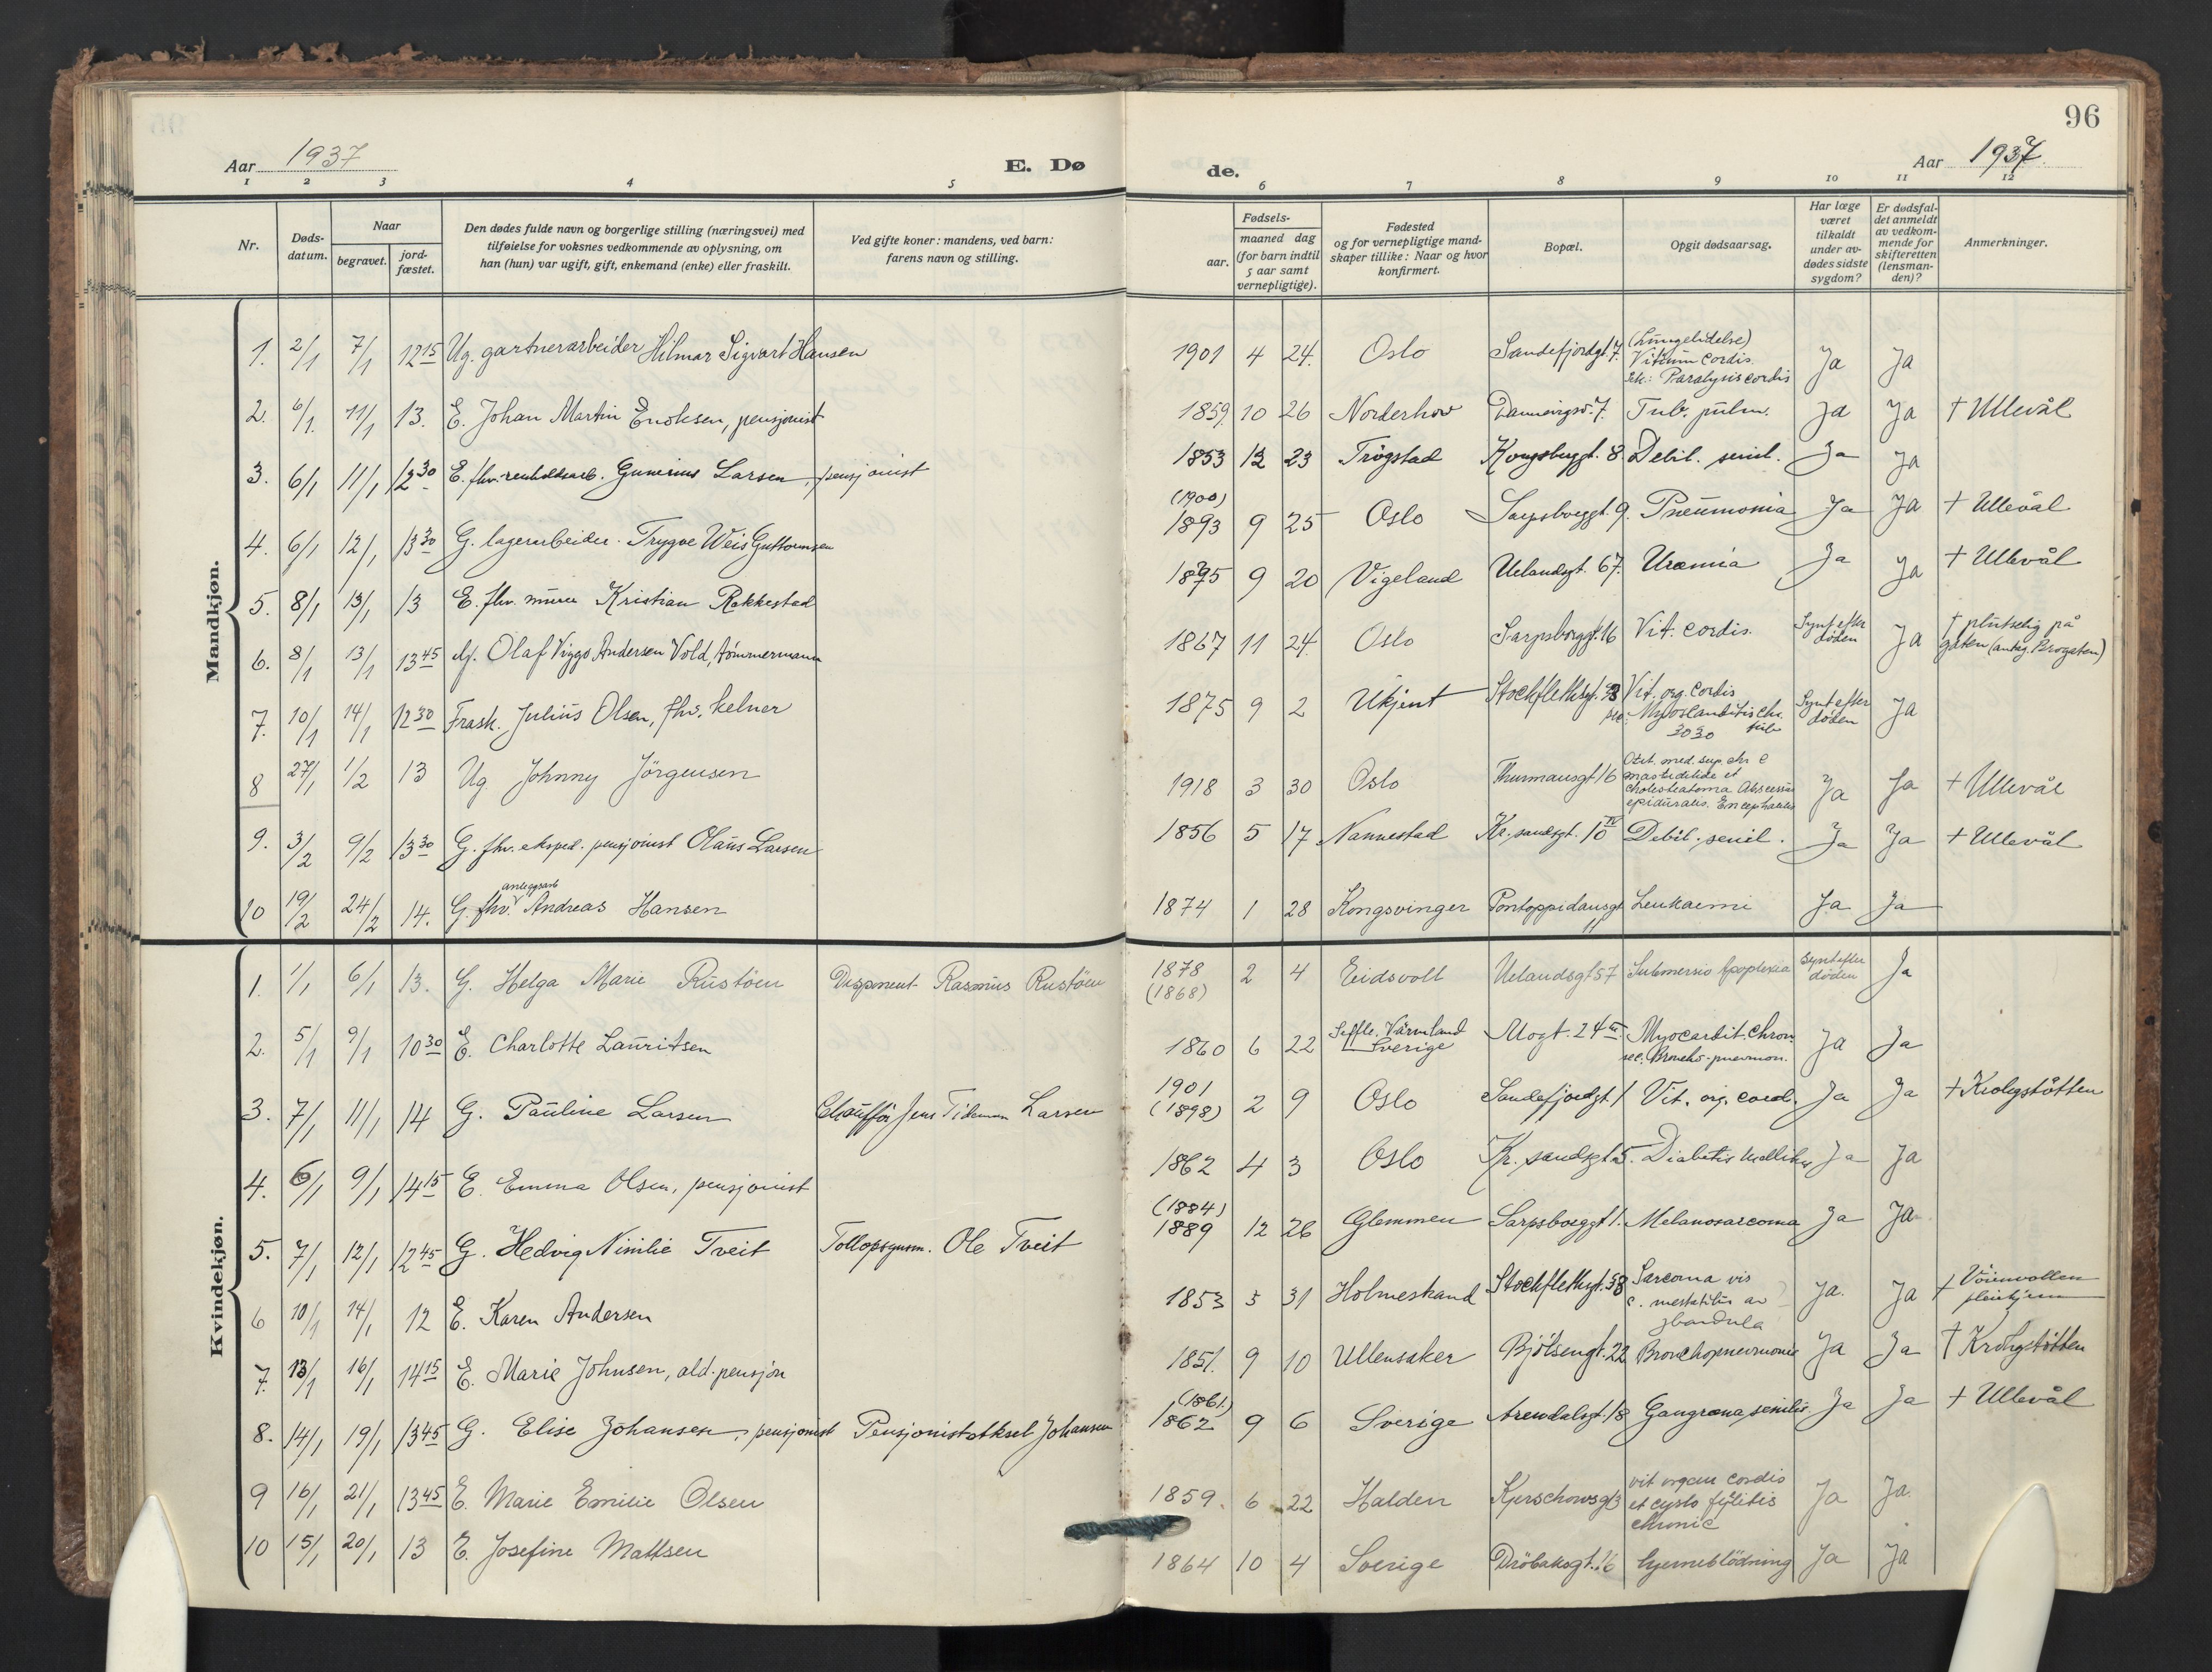 96
Aar 1937
E. Dø
de.
Aar 1937.
1 2 3 4 5 6 7 8 9 10 11 12
Nr.
Døds-
datum.
Naar
begravet.
jord-
fæstet.
Den dødes fulde navn og borgerlige stilling (næringsvei) med
tilføielse for voksnes vedkommende av oplysning, om
han (hun) var ugift, gift, enkemand (enke) eller fraskilt.
Ved gifte koner: mandens, ved barn:
farens navn og stilling.
Fødsels-
aar.
maaned dag
(for barn indtil
5 aar samt
vernepligtige).
Fødested
og for vernepligtige mand-
skaper tillike: Naar og hvor
konfirmert.
Bopæl.
Opgit dødsaarsag.
Har læge
været
tilkaldt
under av-
dødes sidste
sygdom?
Er dødsfal-
det anmeldt
av vedkom-
mende for
skifteretten
(lensman-
den)?
Anmerkninger.
Mandkjøn.
1. 2/1 7/1 12 15 Ug. gartnerarbeider Hilmar Sigvart Hansen 1901 4 24. Oslo Sandefjordgt. 7. (Lungelidelse)
Vitium cordis.
sek: Paralysis cordis
Ja Ja
2. 6/1. 11/1 13. E. Johan Martin Enoksen, pensjonist 1859. 10 26 Norderhov Dannevigsv. 7. Tub. pulm. Ja Ja † Ullevål
3. 6/1 11/1 12 30 E. fhv. renholdsarb. Gunerius Larsen, pensjonist 1853 12 23 Trögstad Kongsbuggt. 8 Debil. senil. Ja Ja
4. 6/1 12/1 13 30 G. lagerarbeider. Trygve Weis Guttormsen (1900)
1893 9 25 Oslo Sarpsborggt. 9. Pneumonia Ja Ja † Ullevål
5. 8/1 13/1 13 E. fhv. murer Kristian Rakkestad 1875 9 20 Vigeland Uelandsgt. 67. Uræmia Ja Ja † Ullevål
6. 8/1 13/1 13 45 Olaf Viggo Andersen Vold, tömmermann 1867 11 24. Oslo Sarpsborggt. 16 Vit. cordis. Synt efter
døden Ja † plutselig på
gaten (antag. Brogaten)
7. 10/1 14/1 12 30 Frask. Julius Olsen, fhv. kelner 1875 9 2 Ukjent Stockflethsgt. 38 Vit. org. cordis
Synt efter
døden Ja
8 27/1 1/2 13 Ug Johnny Jörgensen 1918 3 30 Oslo Thurmannsgt 16 Otit. med. sup. chr c
mastoidilide et
cholesteatoma Abscessus
epiduralis. Encephalitis
Ja Ja † Ullevål
9. 3/2 9/2 13 30 G. fhv. eksped. pensjonist Olaus Larsen 1856 5 17 Nannestad Kr. sandsgt. 10 IV Debil. senil. Ja Ja † Ullevål
10 19/2 24/2 14. G. fhv. anleggsarb Andreas Hansen 1874 1 28 Kongsvinger Pontoppidansgt 11 Leukaemi Ja Ja
Kvindekjøn.
1. 1/1 6/1 13. G. Helga Marie Rustöen Disponent Rasmus Rustöen 1878
(1868) 2 4 Eidsvoll Uelandsgt 57 Submersio Apoplexia Synt efter
døden Ja
2. 5/1 9/1 10 30 E. Charlotte Lauritsen 1860 6 22 Seffle. Värmland
Sverige Mogt. 24 III. Myocardit. chron
sec. Broncho-pneumon. Ja Ja
3. 7/1 11/1 14 G. Pauline Larsen Chauffør Jens Tideman Larsen 1901
(1898) 2 9 Oslo Sandefjordgt 1 Vit. org. cord. Ja Ja † Krohgstötten
4. 6/1 9/1 14 15 E. Emma Olsen, pensjonist 1862 4 3 Oslo Kr. sandsgt 5. Diabetes mellitus Ja Ja
5. 7/1 12/1 12 45 G. Hedvig Nimilie Tveit Tollopsynsm. Ole Tveit (1884)
1889 12 26 Glemmen Sarpsborggt 1. Melanosarcoma Ja Ja
6 10/1 14/1 12 E. Karen Andersen 1853 5 31 Holmestrand Stockflethsgt. 58 Sarcoma
Ja. Ja † Vöienvollen
pleiehjem
7. 13/1 16/1 14 15 E. Marie Johnsen, ald. pensjon 1851. 9 10 Ullensaker Bjölsengt. 22 Bronchopneumonie Ja Ja † Krohgstötten
8. 14/1 19/1 13 45 G. Elise Johansen, pensjonist Pensjonist Aksel Johansen (1861)
1862 9 6 Sverige Arendalsgt. 18 Gangræna senilis Ja Ja † Ullevål
9 16/1 21/1 13 45 E. Marie Emilie Olsen 1859. 6 22 Halden Kjerschowsgt 3 vit organ cordis
et cysto pyelitis
chronic Ja Ja.
10 15/1 20/1 13 E. Josefine Mattsen 1864 10 4 Sverige Dröbaksgt. 16 hjerneblödning Ja Ja